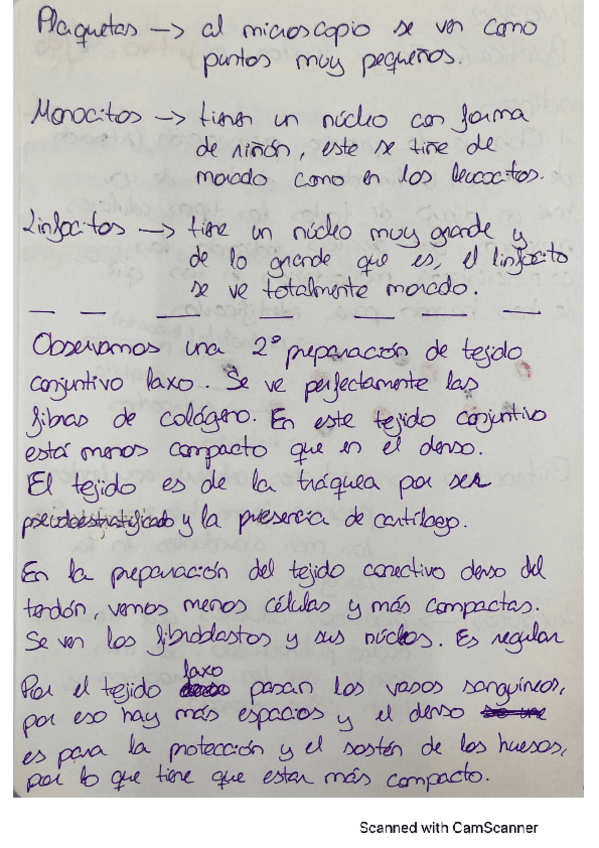 Plaquetas —> al microscopio se ven como
puntos muy pequeños.
Monocitos —> tienen un núcleo con forma
de riñón, este se tiñe de
morado como en los leucocitos.
Linfocitos —> tiene un núcleo muy grande y
de lo grande que es, el linfocito
se ve totalmente morado.
Observamos una 2º preparación de tejido
conjuntivo laxo. Se ve perfectamente las
fibras de colágeno. En este tejido conjuntivo
está menos compacto que en el denso.
El tejido es de la tráquea por ser
pseudoestratificado y la presencia de cartílago.
En la preparación del tejido conectivo denso del
tendón, vemos menos células y más compactas.
Se ven los fibroblastos y sus núcleos. Es regular
Por el tejido laxo pasan los vasos sanguíneos,
por eso hay más espacios y el denso
es para la protección y el sostén de los huesos,
por lo que tiene que estar más compacto.
Scanned with CamScanner